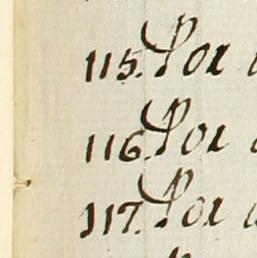 115. Por
116. Por
117. Por